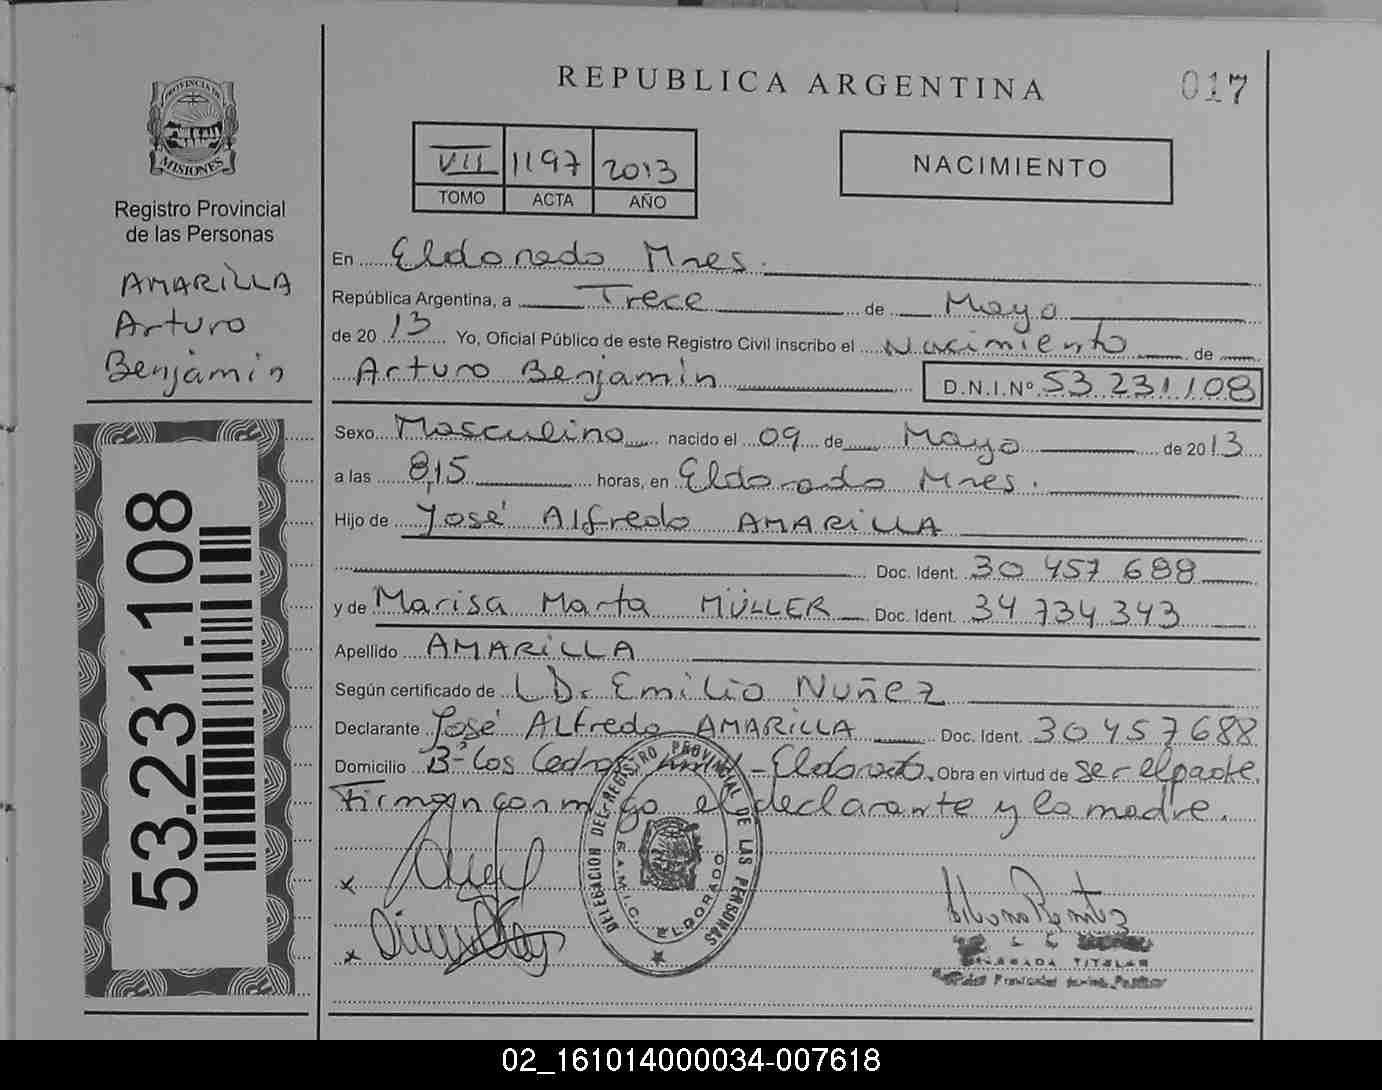 REPUBLICA ARGENTINA
017
PROVINCIA DE
MISIONES
Registro Provincial
de las Personas
AMARILLA
Arturo
Benjamín
53.231.108
VII 1197 2013
TOMO ACTA AÑO
NACIMIENTO
En Eldorado Mnes.
República Argentina, a Trece de Mayo
de 2013 Yo, Oficial Público de este Registro Civil inscribo el Nacimiento de
Arturo Benjamín D.N.I.Nº 53.231.108
Sexo Masculino nacido el 09 de Mayo de 2013
a las 8,15 horas, en Eldorado Mnes.
Hijo de José Alfredo AMARILLA
Doc. Ident. 30 457 688
y de Marisa Marta MÜLLER Doc. Ident. 34 734 343
Apellido AMARILLA
Según certificado de Dr. Emilio Nuñez
Declarante José ALfredo AMARILLA Doc. Ident. 30 457 688
Domicilio Bº Los Cedros - Eldorado. Obra en virtud de ser el padre.
Firman conmigo el declarante y la madre.
DELEGACION DEL REGISTRO PROVINCIAL DE LAS PERSONAS
ELDORADO
x
x
TITULAR
02_161014000034-007618